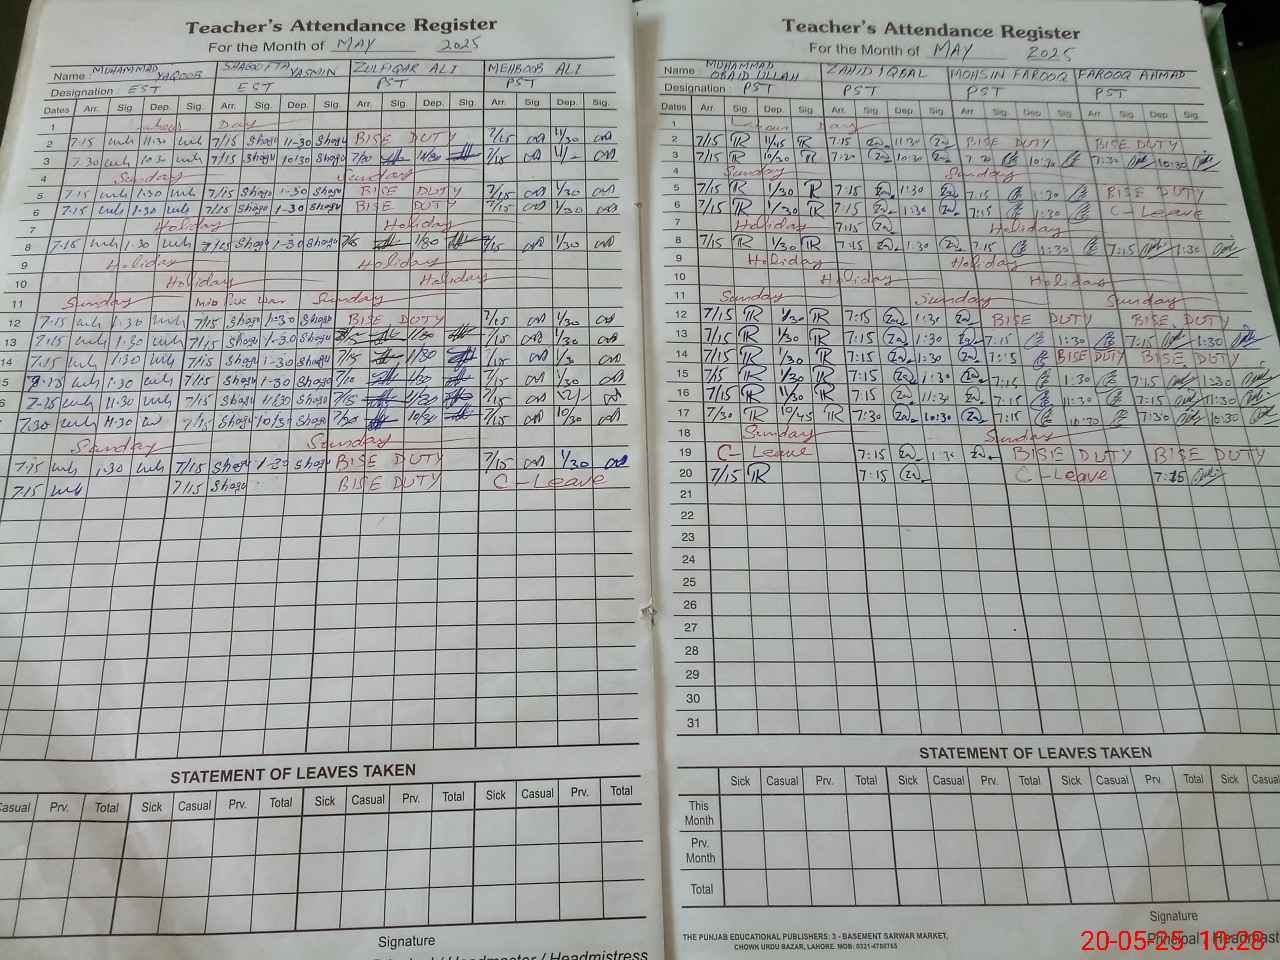 Teacher's Attendance Register
For the Month of MAY 2025
Name: MUHAMMAD YAQOOB SHAGUFTA YASMIN ZULFIQAR ALI MEHBOOB ALI
Designation: EST EST PST PST
Dates Arr. Sig. Dep. Sig. Arr. Sig. Dep. Sig. Arr. Sig. Dep. Sig. Arr. Sig. Dep. Sig.
1 Labour Day
2 7-15 11-30 7/15 Shagu 11-30 Shagu BISE DUTY 7/15 11/30
3 7-30 10-30 7/15 Shagu 10/30 Shagu 7/30 10/30 7/15 11/-
4 Sunday Sunday
5 7-15 1-30 7/15 Shagu 1-30 Shagu BISE DUTY 7/15 1/30
6 7-15 1-30 7/15 Shagu 1-30 Shagu BISE DUTY 7/15 1/30
7 Holiday Holiday
8 7-15 1-30 7/15 Shagu 1-30 Shagu 7/15 1/30 7/15 1/30
9 Holiday Holiday
10 Holiday Holiday
11 Sunday Indo Pak War Sunday
12 7-15 1-30 7/15 Shagu 1-30 Shagu BISE DUTY 7/15 1/30
13 7-15 1-30 7/15 Shagu 1-30 Shagu 1/30 7/15 1/30
14 7-15 1-30 7/15 Shagu 1-30 Shagu 7/15 1/30 7/15 1/30
5 1-30 7/15 Shagu 1-30 Shagu 7/10 1/30 7/15 1/30
6 7-25 11-30 7/15 Shagu 11/30 Shagu 7/15 11/30 7/15
7-30 7/15 Shagu 10/30 Shagu 7/30 10/30 7/15 10/30
Sunday Sunday
7-15 1-30 7/15 Shagu 1-30 Shagu BISE DUTY 7/15 1/30
7-15 7/15 Shagu BISE DUTY C-Leave
STATEMENT OF LEAVES TAKEN
Casual Prv. Total Sick Casual Prv. Total Sick Casual Prv. Total Sick Casual Prv. Total
Signature
/ Headmaster / Headmistress
Teacher's Attendance Register
For the Month of MAY 2025
Name: MUHAMMAD OBAID ULLAH ZAHID IQBAL MOHSIN FAROOQ FAROOQ AHMAD
Designation: PST PST PST PST
Dates Arr. Sig. Dep. Sig. Arr. Sig. Dep. Sig. Arr. Sig. Dep. Sig. Arr. Sig. Dep. Sig.
1 Labour Day
2 7/15 11/45 7:15 11:30 BISE DUTY BISE DUTY
3 7/15 10/30 7:20 10:30 7:30 10:30 7:30 10:30
4 Sunday Sunday
5 7/15 1/30 7:15 1:30 7:15 1:30 BISE DUTY
6 7/15 1/30 7:15 1:30 7:15 1:30 C-Leave
7 Holiday 7:15 Holiday
8 7/15 1/30 7:15 1:30 7:15 1:30 7:15 1:30
9 Holiday Holiday
10 Holiday Holiday
11 Sunday Sunday Sunday
12 7/15 1/30 7:15 1:30 BISE DUTY BISE DUTY
13 7/15 1/30 7:15 1:30 7:15 1:30 7:15 1:30
14 7/15 1/30 7:15 1:30 7:15 BISE DUTY BISE DUTY
15 7/15 1/30 7:15 1:30 7:15 1:30 7:15 1:30
16 7/15 11/30 7:15 11:30 7:15 11:30 7:15 11:30
17 7/30 10/45 7:30 10:30 7:15 10:30 7:30 10:30
18 Sunday Sunday
19 C-Leave 7:15 1:30 BISE DUTY BISE DUTY
20 7/15 7:15 C-Leave 7:15
21
22
23
24
25
26
27
28
29
30
31
STATEMENT OF LEAVES TAKEN
Sick Casual Prv. Total Sick Casual Prv. Total Sick Casual Prv. Total Sick Casual
This Month
Prv. Month
Total
Signature
Principal / Headmast
THE PUNJAB EDUCATIONAL PUBLISHERS: 3 - BASEMENT SARWAR MARKET,
CHOWK URDU BAZAR, LAHORE. MOB: 0321-4788765
20-05-25 10:28